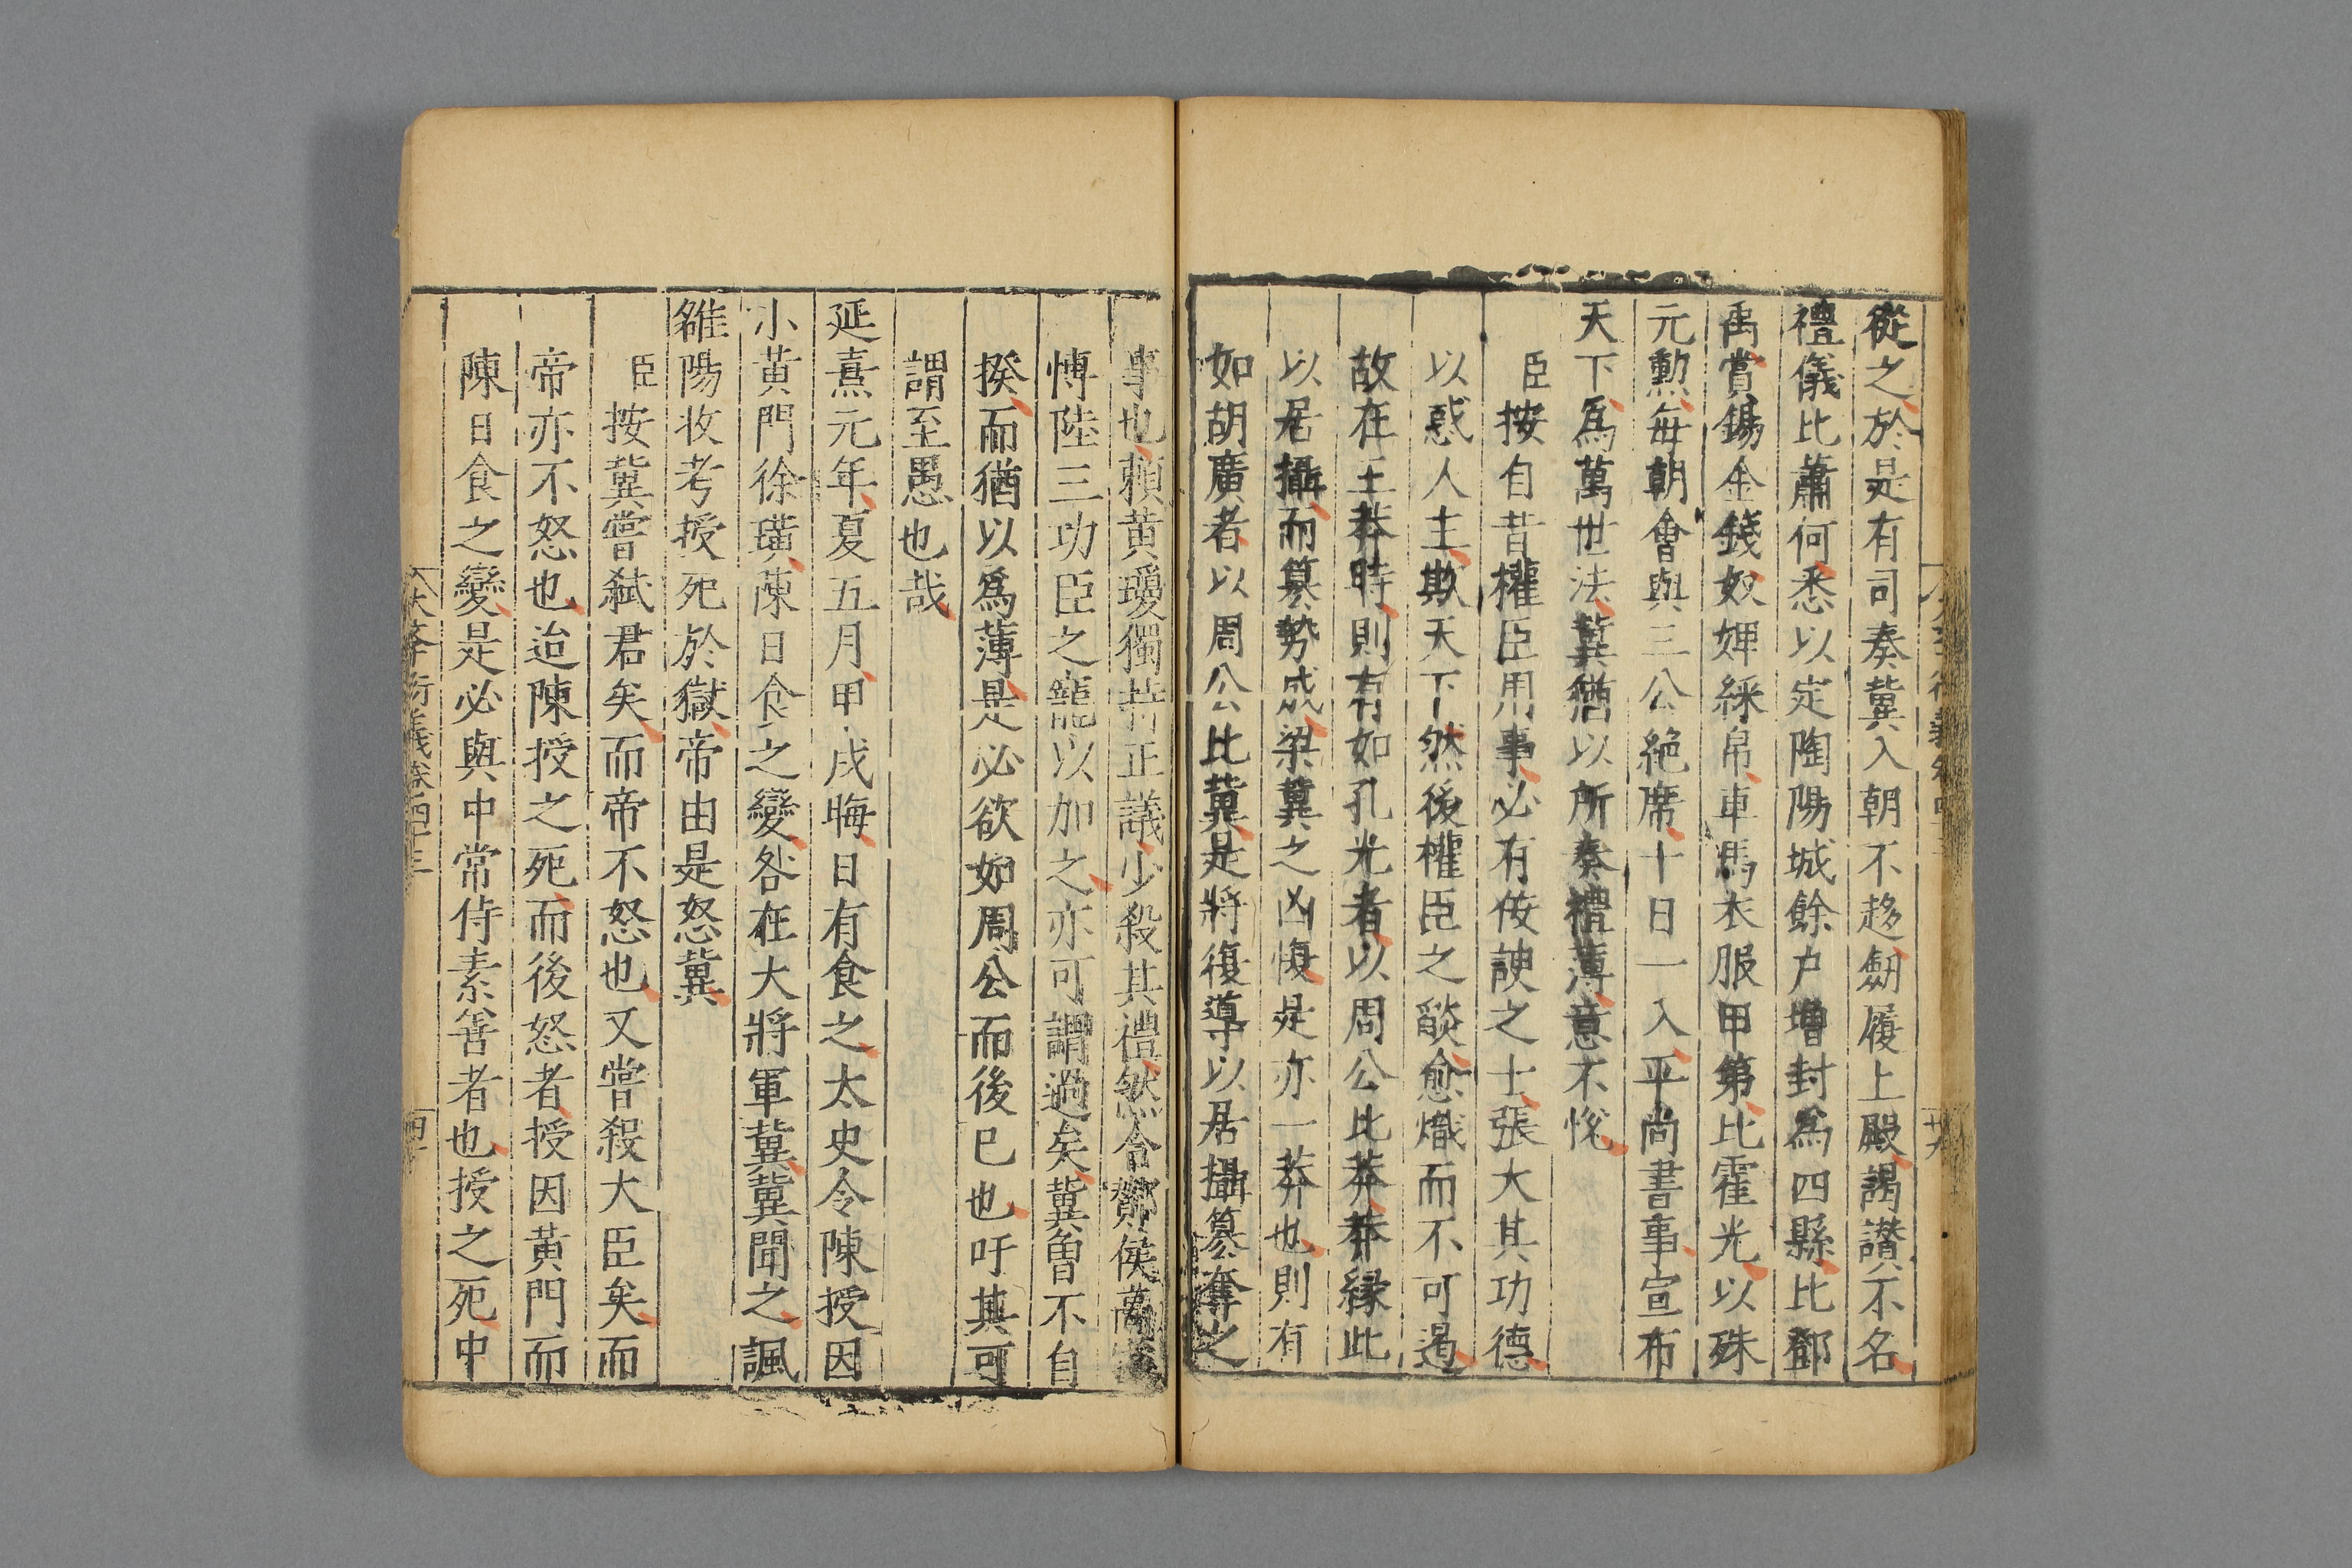 從之於是有司奏冀入朝不趍劒履上殿謁讃不名
禮儀比蕭何悉以定陶陽城餘户增封爲四縣比鄧
禹賞錫金錢奴婢綵帛車馬衣服甲第比霍光以殊
元勲每朝會與三公絶席十日一入平尚書事宣布
天下爲萬世法冀猶以所奏禮薄意不恱
臣按自昔權臣用事必有佞諛之士張大其功德
以惑人主欺天下然後權臣之燄愈熾而不可遏
故在王莽時則有如孔光者以周公比莽莽縁此
以居攝而篡勢成梁冀之凶愎是亦一莽也則有
如胡廣者以周公比冀是將復導以居攝篡奪之
事也頼黄瓊獨持正議少殺其禮然合鄼侯萬
愽陸三功臣之寵以加之亦可謂過矣冀曾不自
揆而猶以爲薄是必欲如周公而後已也吁其可
謂至愚也哉
延熹元年夏五月甲戌晦日有食之太史令陳授因
小黄門徐璜陳日食之變咎在大將軍冀冀聞之諷
雒陽收考授死於獄帝由是怒冀
臣按冀嘗弑君矣而帝不怒也又嘗殺大臣矣而
帝亦不怒也迨陳授之死而後怒者授因黄門而
陳日食之變是必與中常侍素善者也授之死中
大學衍義卷四十三
四十